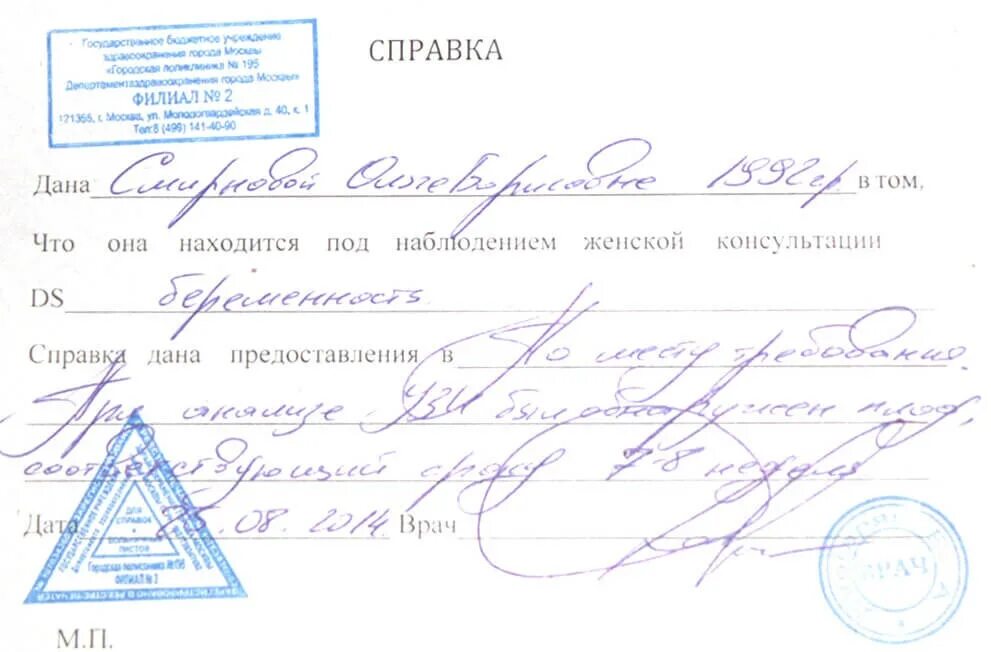 Государственное бюджетное учреждение
здравоохранения города Москвы
«Городская поликлиника № 195
Департамента здравоохранения города Москвы»
ФИЛИАЛ № 2
121355, г. Москва, ул. Молодогвардейская д. 40, к. 1
Тел:8 (499) 141-40-90
СПРАВКА
Дана Смирновой Ольге Борисовне 1992 г.р. в том,
Что она находится под наблюдением женской консультации
DS беременность
Справка дана предоставления в По месту требования.
При анализе УЗИ был обнаружен плод,
соответствующий сроку 7-8 недель
Дата 25.08.2014 Врач
ДЛЯ
СПРАВОК
БОЛЬНИЧНЫХ
ЛИСТОВ
Городская поликлиника №195
ФИЛИАЛ № 2
ЗАРЕГИСТРИРОВАНО В РЕЕСТРЕ ПЕЧАТЕЙ
ВРАЧ
М.П.